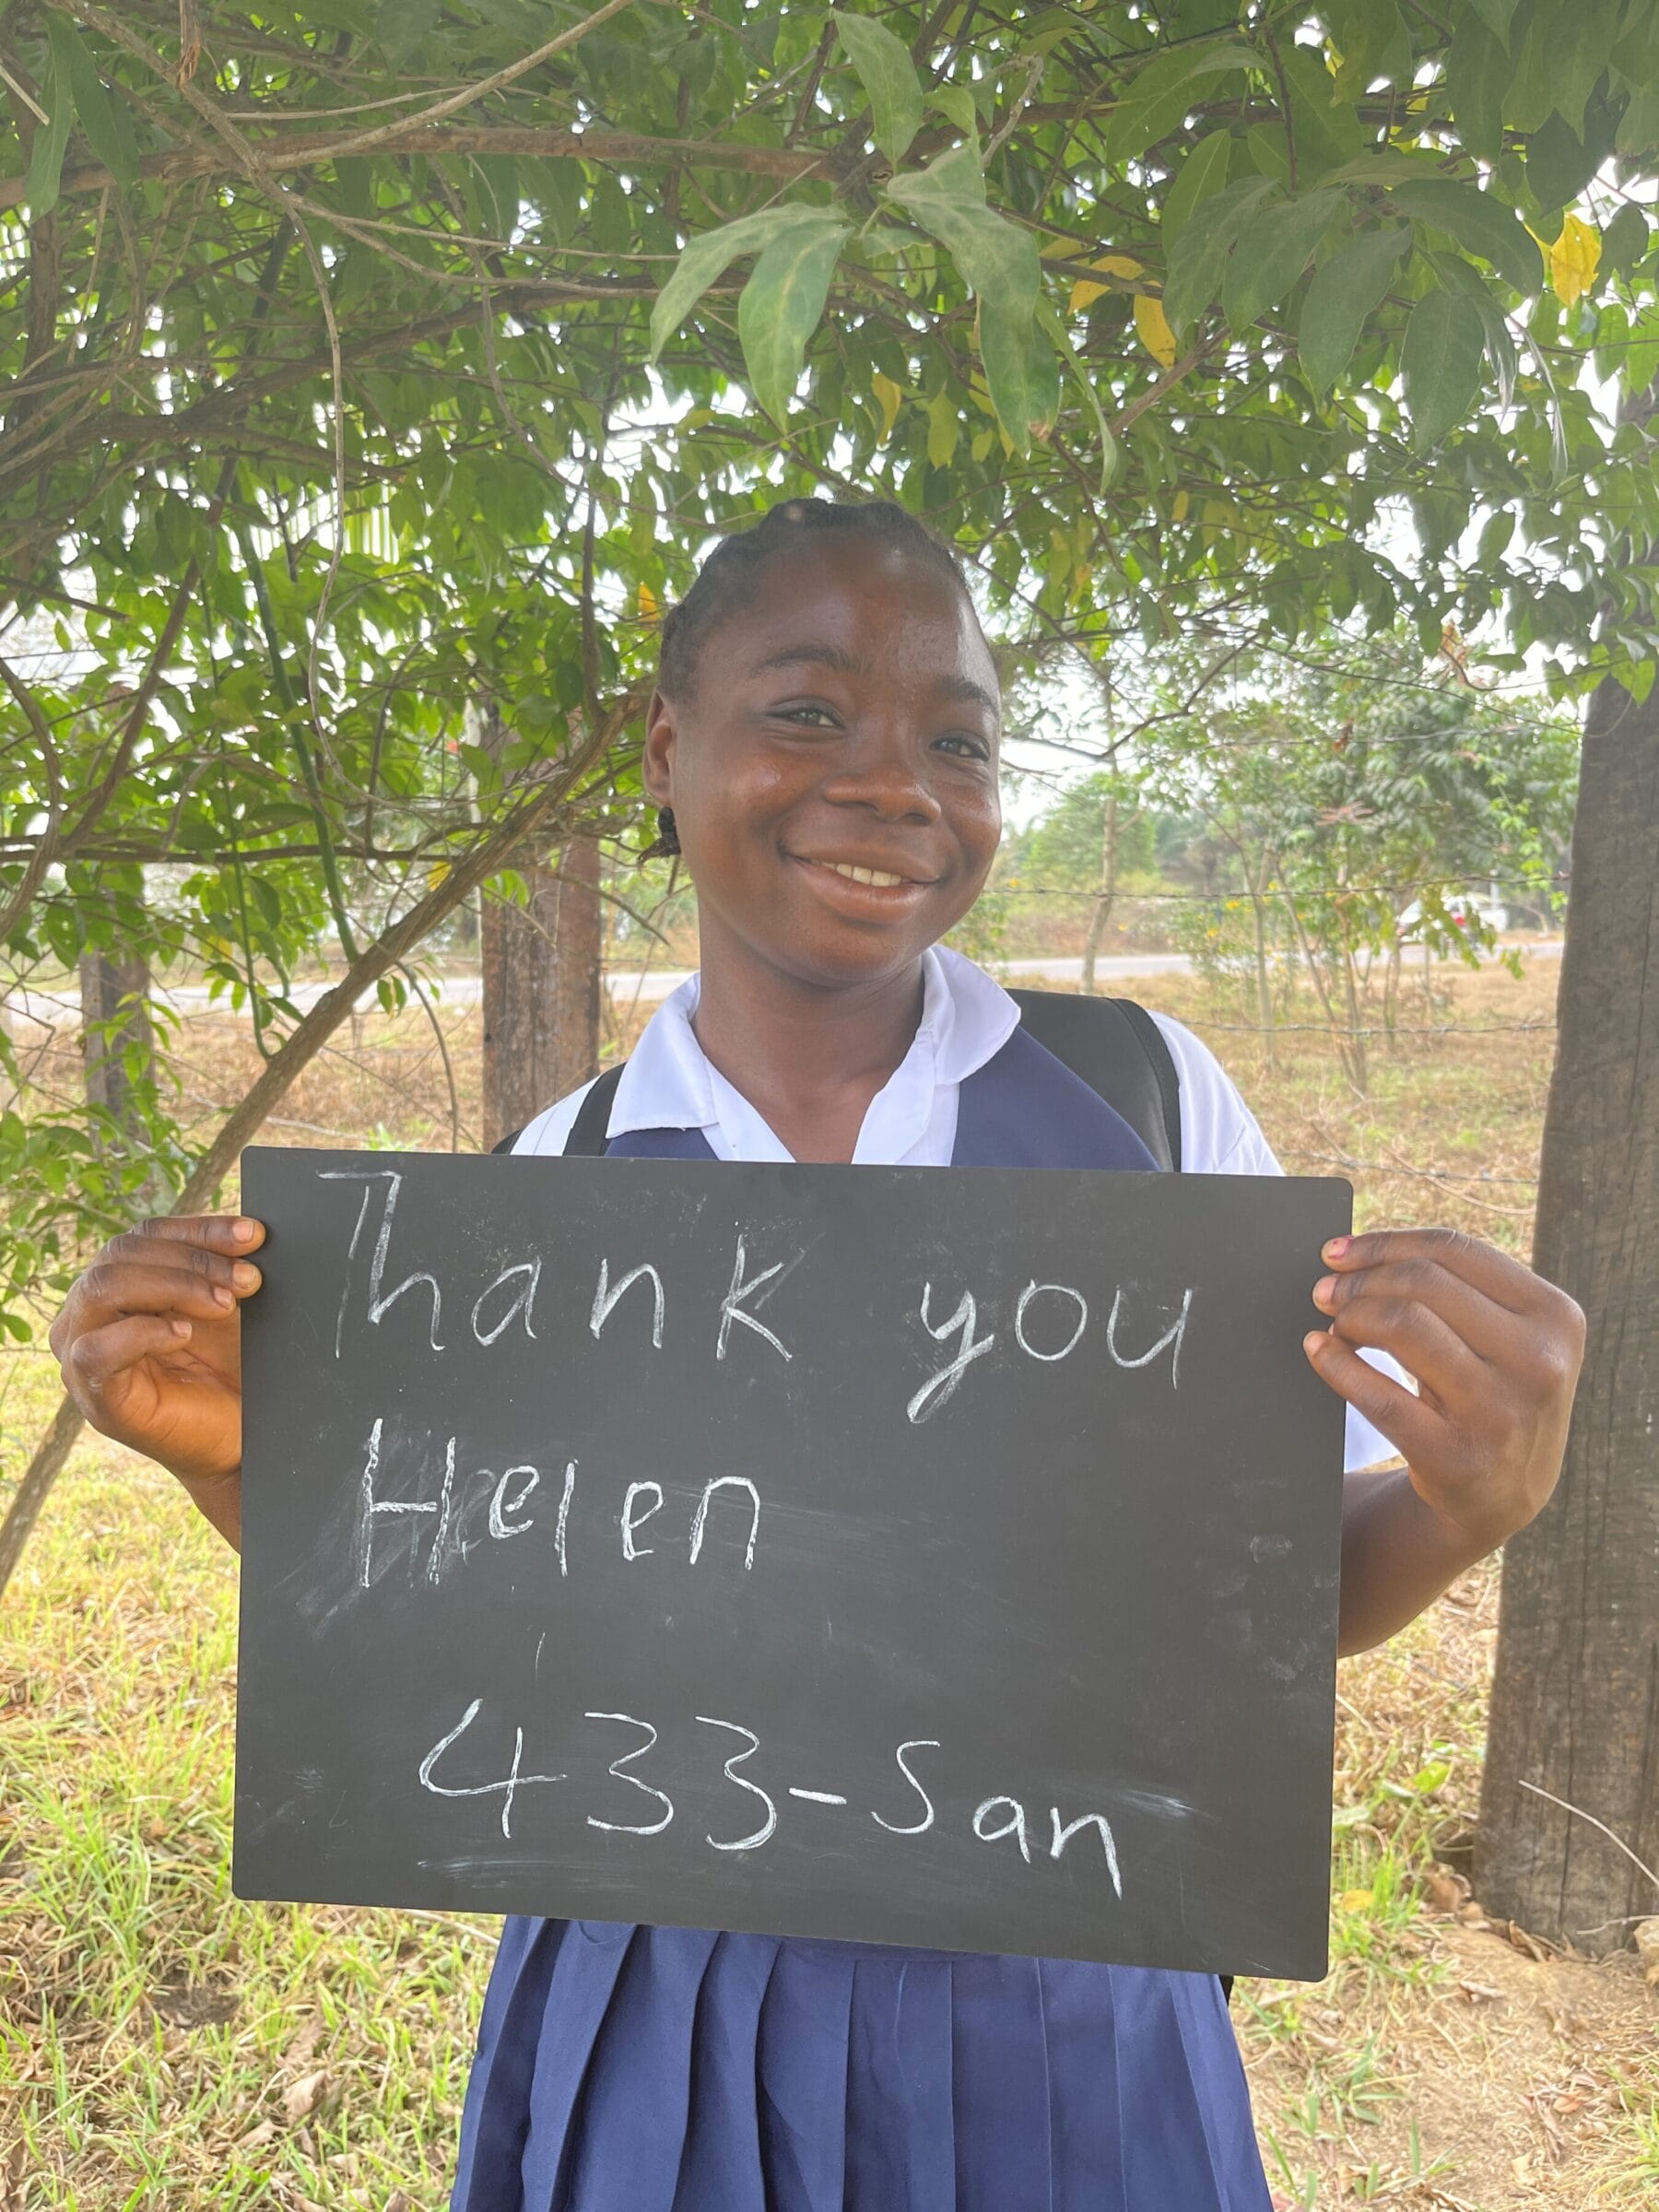 Thank you
Helen
433-San